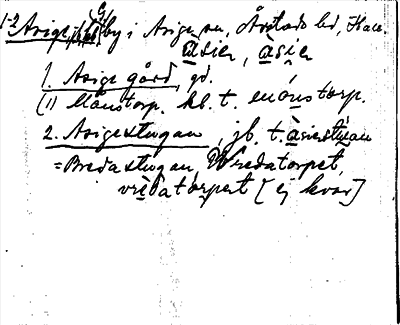 1-2 Asige, by i Asige sn, Årstads hd, Hall.
àsier, àsier
1. Asige gård, gd.
(1) Månstorp. hb. t. månstorp.
2. Asigestugan, jb. t. àsierstugan
= Bredastugan, Wredatorpet,
vredatorpert [ej kvar]